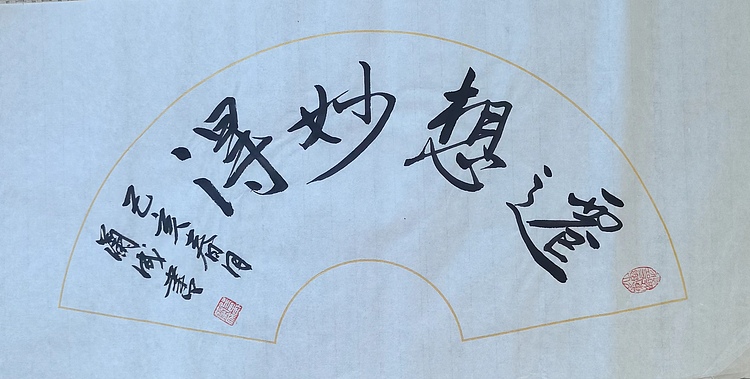 遷想妙得
己亥春日
書